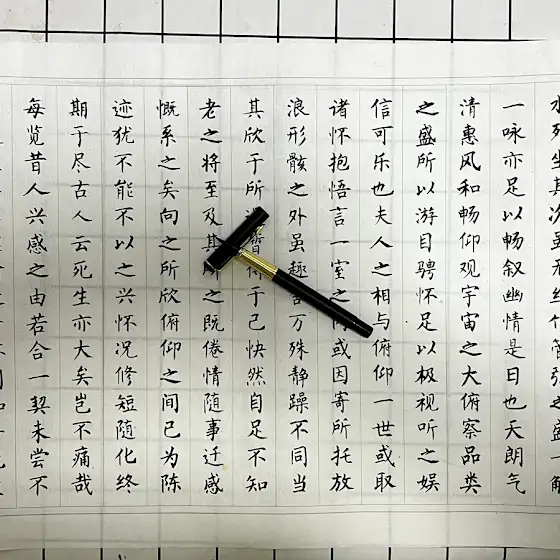 水坐其次虽无竹管弦之盛一
一咏亦足以畅叙幽情是日也天朗气
清惠风和畅仰观宇宙之大俯察品类
之盛所以游目骋怀足以极视听之娱
信可乐也夫人之相与俯仰一世或取
诸怀抱悟言一室之或因寄所托放
浪形骸之外虽趣万殊静躁不同当
其欣于所暂得于己快然自足不知
老之将至及其所之既倦情随事迁感
慨系之矣向之所欣俯仰之间已为陈
迹犹不能不以之兴怀况修短随化终
期于尽古人云死生亦大矣岂不痛哉
每览昔人兴感之由若合一契未尝不